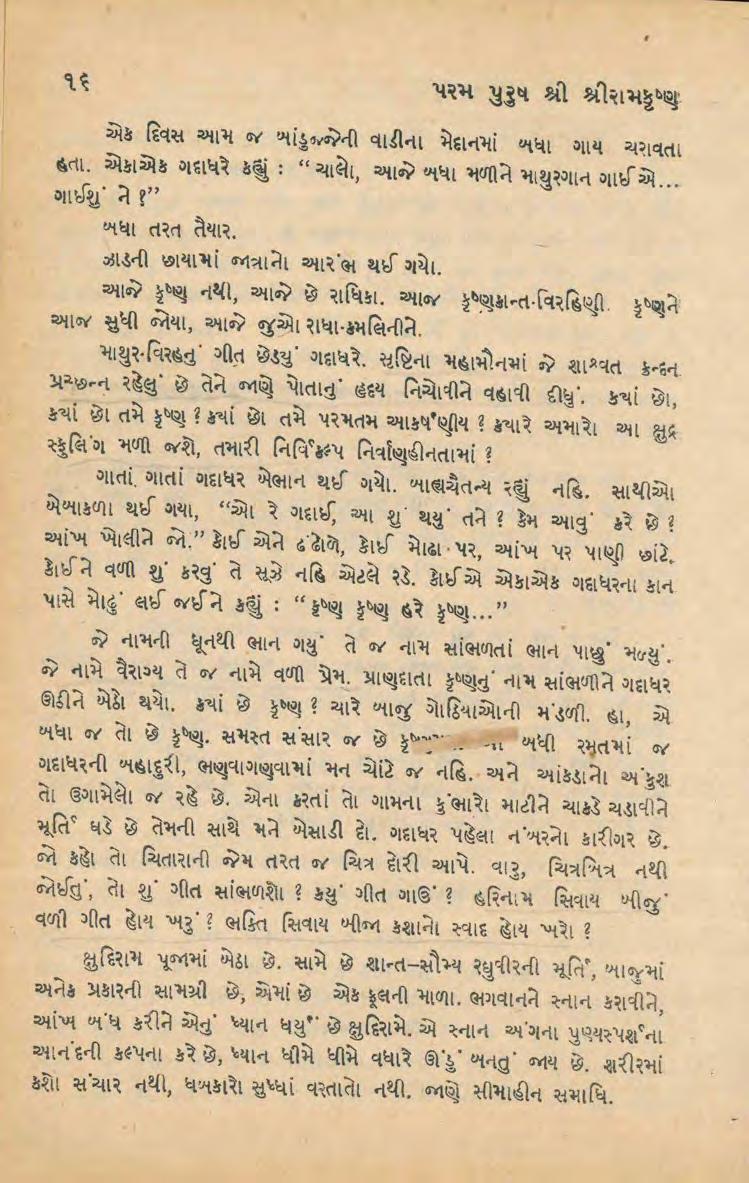 ૧૬
પરમ પુરુષ શ્રી શ્રીરામકૃષ્ણ
એક દિવસ આમ જ બાંડુજ્જેની વાડીના મેદાનમાં બધા ગાય ચરાવતા
હતા. એકાએક ગદાધરે કહ્યું : “ચાલો, આજે બધા મળીને માથુરગાન ગાઈએ...
ગાઈશું ને ?”
બધા તરત તૈયાર.
ઝાડની છાયામાં જાત્રાનો આરંભ થઈ ગયો.
આજે કૃષ્ણ નથી, આજે છે રાધિકા. આજ કૃષ્ણકાન્ત-વિરહિણી. કૃષ્ણને
આજ સુધી જોયા, આજે જુઓ રાધા-કમલિનીને.
માથુર-વિરહનું ગીત છેડયું ગદાધરે. સૃષ્ટિના મહામૌનમાં જે શાશ્વત ક્રન્દન
પ્રચ્છન્ન રહેલું છે તેને જાણે પોતાનું હૃદય નિચોવીને વહાવી દીધું. કયાં છો,
કયાં છો તમે કૃષ્ણ ? કયાં છો તમે પરમતમ આકર્ષણીય ? કયારે અમારો આ ક્ષુદ્ર
સ્ફુલિંગ મળી જશે, તમારી નિર્વિકલ્પ નિર્વાણહીનતામાં ?
ગાતાં ગાતાં ગદાધર બેભાન થઈ ગયો. બાહ્યચૈતન્ય રહ્યું નહિ. સાથીઓ
બેબાકળા થઈ ગયા, “ઓ રે ગદાઈ, આ શું થયું તને ? કેમ આવું કરે છે ?
આંખ ખોલીને જો.” કોઈ એને ઢંઢોળે, કોઈ મોઢા પર, આંખ પર પાણી છાંટે.
કોઈને વળી શું કરવું તે સૂઝે નહિ એટલે રડે. કોઈએ એકાએક ગદાધરના કાન
પાસે મોઢું લઈ જઈને કહ્યું : “કૃષ્ણ કૃષ્ણ હરે કૃષ્ણ...”
જે નામની ધૂનથી ભાન ગયું તે જ નામ સાંભળતાં ભાન પાછું મળ્યું.
જે નામે વૈરાગ્ય તે જ નામે વળી પ્રેમ. પ્રાણદાતા કૃષ્ણનું નામ સાંભળીને ગદાધર
ઊઠીને બેઠો થયો. કયાં છે કૃષ્ણ ? ચારે બાજુ ગોઠિયાઓની મંડળી. હા, એ
બધા જ તો છે કૃષ્ણ. સમસ્ત સંસાર જ છે બધી રમતમાં જ
ગદાધરની બહાદુરી, ભણવાગણવામાં મન ચોંટે જ નહિ. અને આંકડાનો અંકુશ
તો ઉગામેલો જ રહે છે. એના કરતાં તો ગામના કુંભારો માટીને ચાકડે ચડાવીને
મૂર્તિ ઘડે છે તેમની સાથે મને બેસાડી દો. ગદાધર પહેલા નંબરનો કારીગર છે.
જો કહો તો ચિતારાની જેમ તરત જ ચિત્ર દોરી આપે. વારુ, ચિત્રબિત્ર નથી
જોઈતું, તો શું ગીત સાંભળશો ? કયું ગીત ગાઉં ? હરિનામ સિવાય બીજું
વળી ગીત હોય ખરું ? ભક્તિ સિવાય બીજા કશાનો સ્વાદ હોય ખરો ?
ક્ષુદિરામ પૂજામાં બેઠા છે. સામે છે શાન્ત–સૌમ્ય રઘુવીરની મૂર્તિ, બાજુમાં
અનેક પ્રકારની સામગ્રી છે, એમાં છે એક ફૂલની માળા. ભગવાનને સ્નાન કરાવીને,
આંખ બંધ કરીને એનું ધ્યાન ધર્યું છે ક્ષુદિરામે. એ સ્નાન અંગના પુણ્યસ્પર્શના
આનંદની કલ્પના કરે છે, ધ્યાન ધીમે ધીમે વધારે ઊંડું બનતું જાય છે. શરીરમાં
કશો સંચાર નથી, ધબકારો સુધ્ધાં વરતાતો નથી. જાણે સીમાહીન સમાધિ.